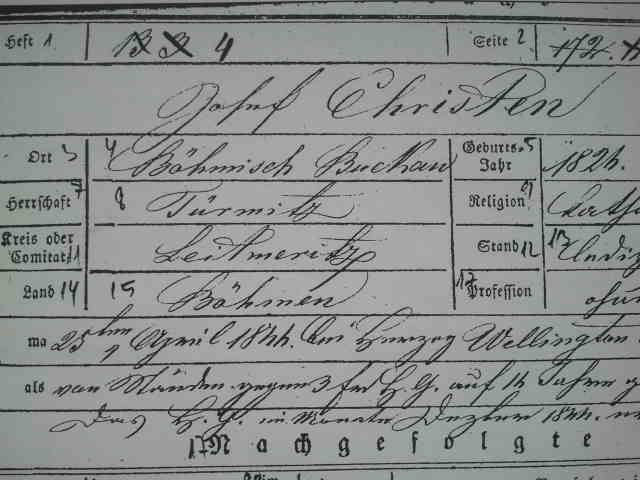 Heft 1 B B 4 Seite 2 172.
Josef Christen
Ort 3 4 Böhmisch Buckau Geburts- 5 Jahr 1824.
Herrschaft 7 8 Türmitz Religion 9 Cath
Kreis oder Comitat 11 Leitmeritz Stand 12 13 ledig
Land 14 15 Böhmen 17 Profession ohn
ma 25ten April 1844. bei Herzog Wellington
als von Ständen gegen 3 f H. G. auf 14 Jahre
Das H. G. im Monate Dezber 1844.
17 Nachgefolgte